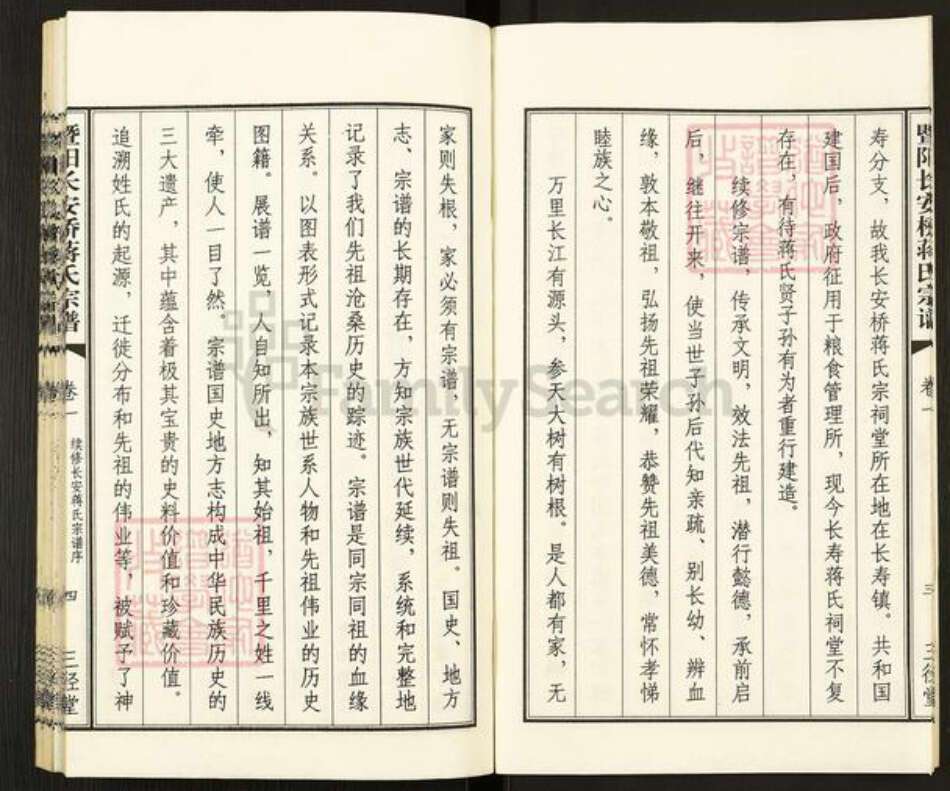 暨阳长安桥蒋氏宗谱 卷一 三 三径堂
寿分支，故我长安桥蒋氏宗祠堂所在地在长寿镇。共和国
建国后，政府征用于粮食管理所，现今长寿蒋氏祠堂不复
存在，有待蒋氏贤子孙有为者重行建造。
续修宗谱，传承文明，效法先祖，潜行懿德，承前启
后，继往开来，使当世子孙后代知亲疏、别长幼、辨血
缘，敦本敬祖，弘扬先祖荣耀，恭赞先祖美德，常怀孝悌
睦族之心。
万里长江有源头，参天大树有树根。是人都有家，无
家则失根，家必须有宗谱，无宗谱则失祖。国史、地方
志、宗谱的长期存在，方知宗族世代延续，系统和完整地
记录了我们先祖沧桑历史的踪迹。宗谱是同宗同祖的血缘
关系。以图表形式记录本宗族世系人物和先祖伟业的历史
图籍。展谱一览，人自知所出，知其始祖，千里之姓一线
牵，使人一目了然。宗谱国史地方志构成中华民族历史的
三大遗产，其中蕴含着极其宝贵的史料价值和珍藏价值。
追溯姓氏的起源，迁徙分布和先祖的伟业等，被赋予了神
暨阳长安桥蒋氏宗谱 卷一 续修长安蒋氏宗谱序 四 三径堂
FamilySearch